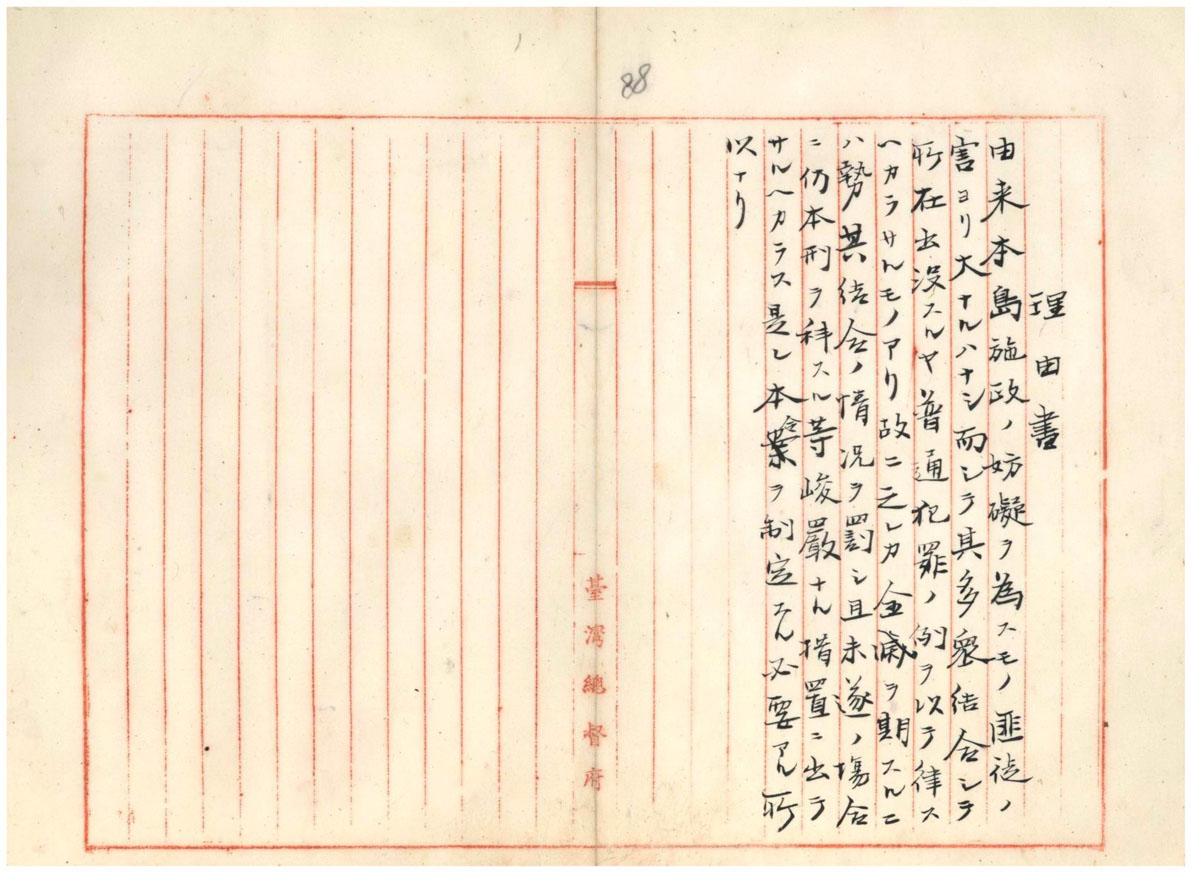 88
理由書
由来本島施政ノ妨礙ヲ為スモノ匪徒ノ
害ヨリ大ナルハナシ而シテ其多衆結合シテ
所在出没スルヤ普通犯罪ノ例ヲ以テ律ス
ヘカラサルモノアリ故ニ之レカ全滅ヲ期スルニ
ハ勢其結合ノ情況ヲ罰シ且未遂ノ場合
ニ仍本刑ヲ科スル等峻嚴ナル措置ニ出テ
サルヘカラス是レ本令ヲ制定スル必要アル所
以ナリ
臺灣總督府